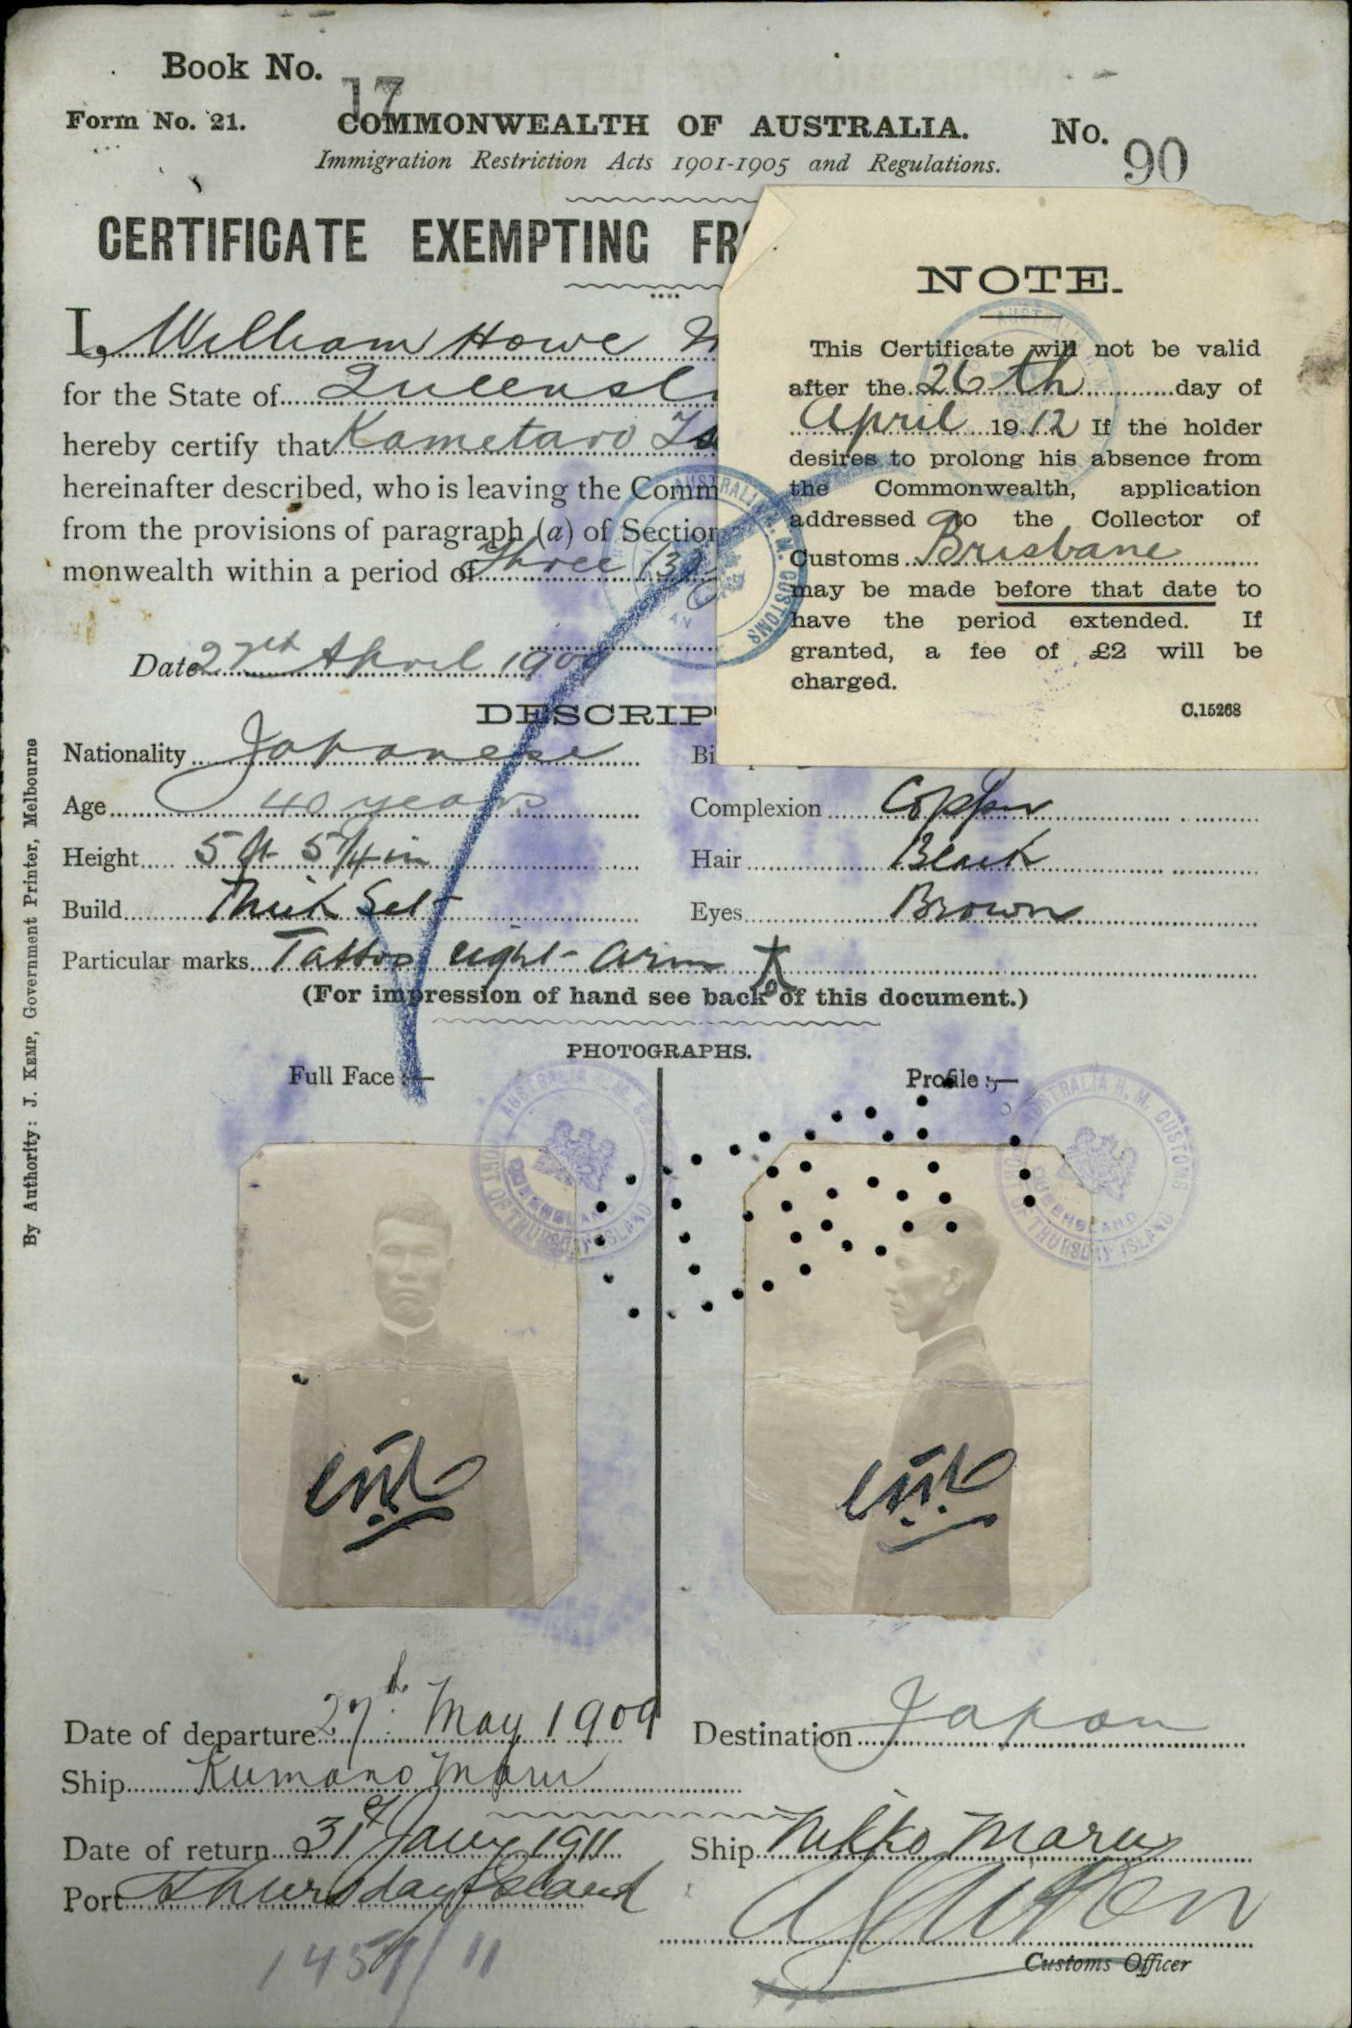 Book No. 17
Form No. 21. COMMONWEALTH OF AUSTRALIA. No. 90
Immigration Restriction Acts 1901-1905 and Regulations.
CERTIFICATE EXEMPTING
I, William Howe
for the State of
hereby certify that Kametaro
hereinafter described, who is leaving the
from the provisions of paragraph (a) of
monwealth within a period of Three (3)
Date 27th April 1909
NOTE.
This Certificate will not be valid
after the 26th day of
April 1912 If the holder
desires to prolong his absence from
the Commonwealth, application
addressed to the Collector of
Customs Brisbane
may be made before that date to
have the period extended. If
granted, a fee of £2 will be
charged.
C.15268
Nationality Japanese
Age 40 years Complexion Copper
Height 5 ft 5 1/4 in Hair Black
Build Thick Set Eyes Brown
Particular marks Tattoo right arm
(For impression of hand see back of this document.)
PHOTOGRAPHS.
Full Face :— Profile :—
AUSTRALIA H. M. CUSTOMS
QUEENSLAND
PORT OF THURSDAY ISLAND
AUSTRALIA H. M. CUSTOMS
QUEENSLAND
PORT OF THURSDAY ISLAND
Date of departure 27th May 1909 Destination Japan
Ship Kumano Maru
Date of return 31st Jany 1911 Ship Nikko Maru
Port Thursday Island
Customs Officer
By Authority: J. KEMP, Government Printer, Melbourne